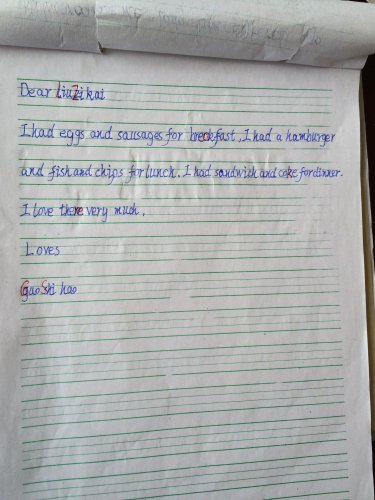 Dear LiuZikai
I had eggs and sausages for breakfast. I had a hamburger
and fish and chips for lunch. I had sandwich and coke for dinner.
I love there very much.
Loves
Guo Shi hao